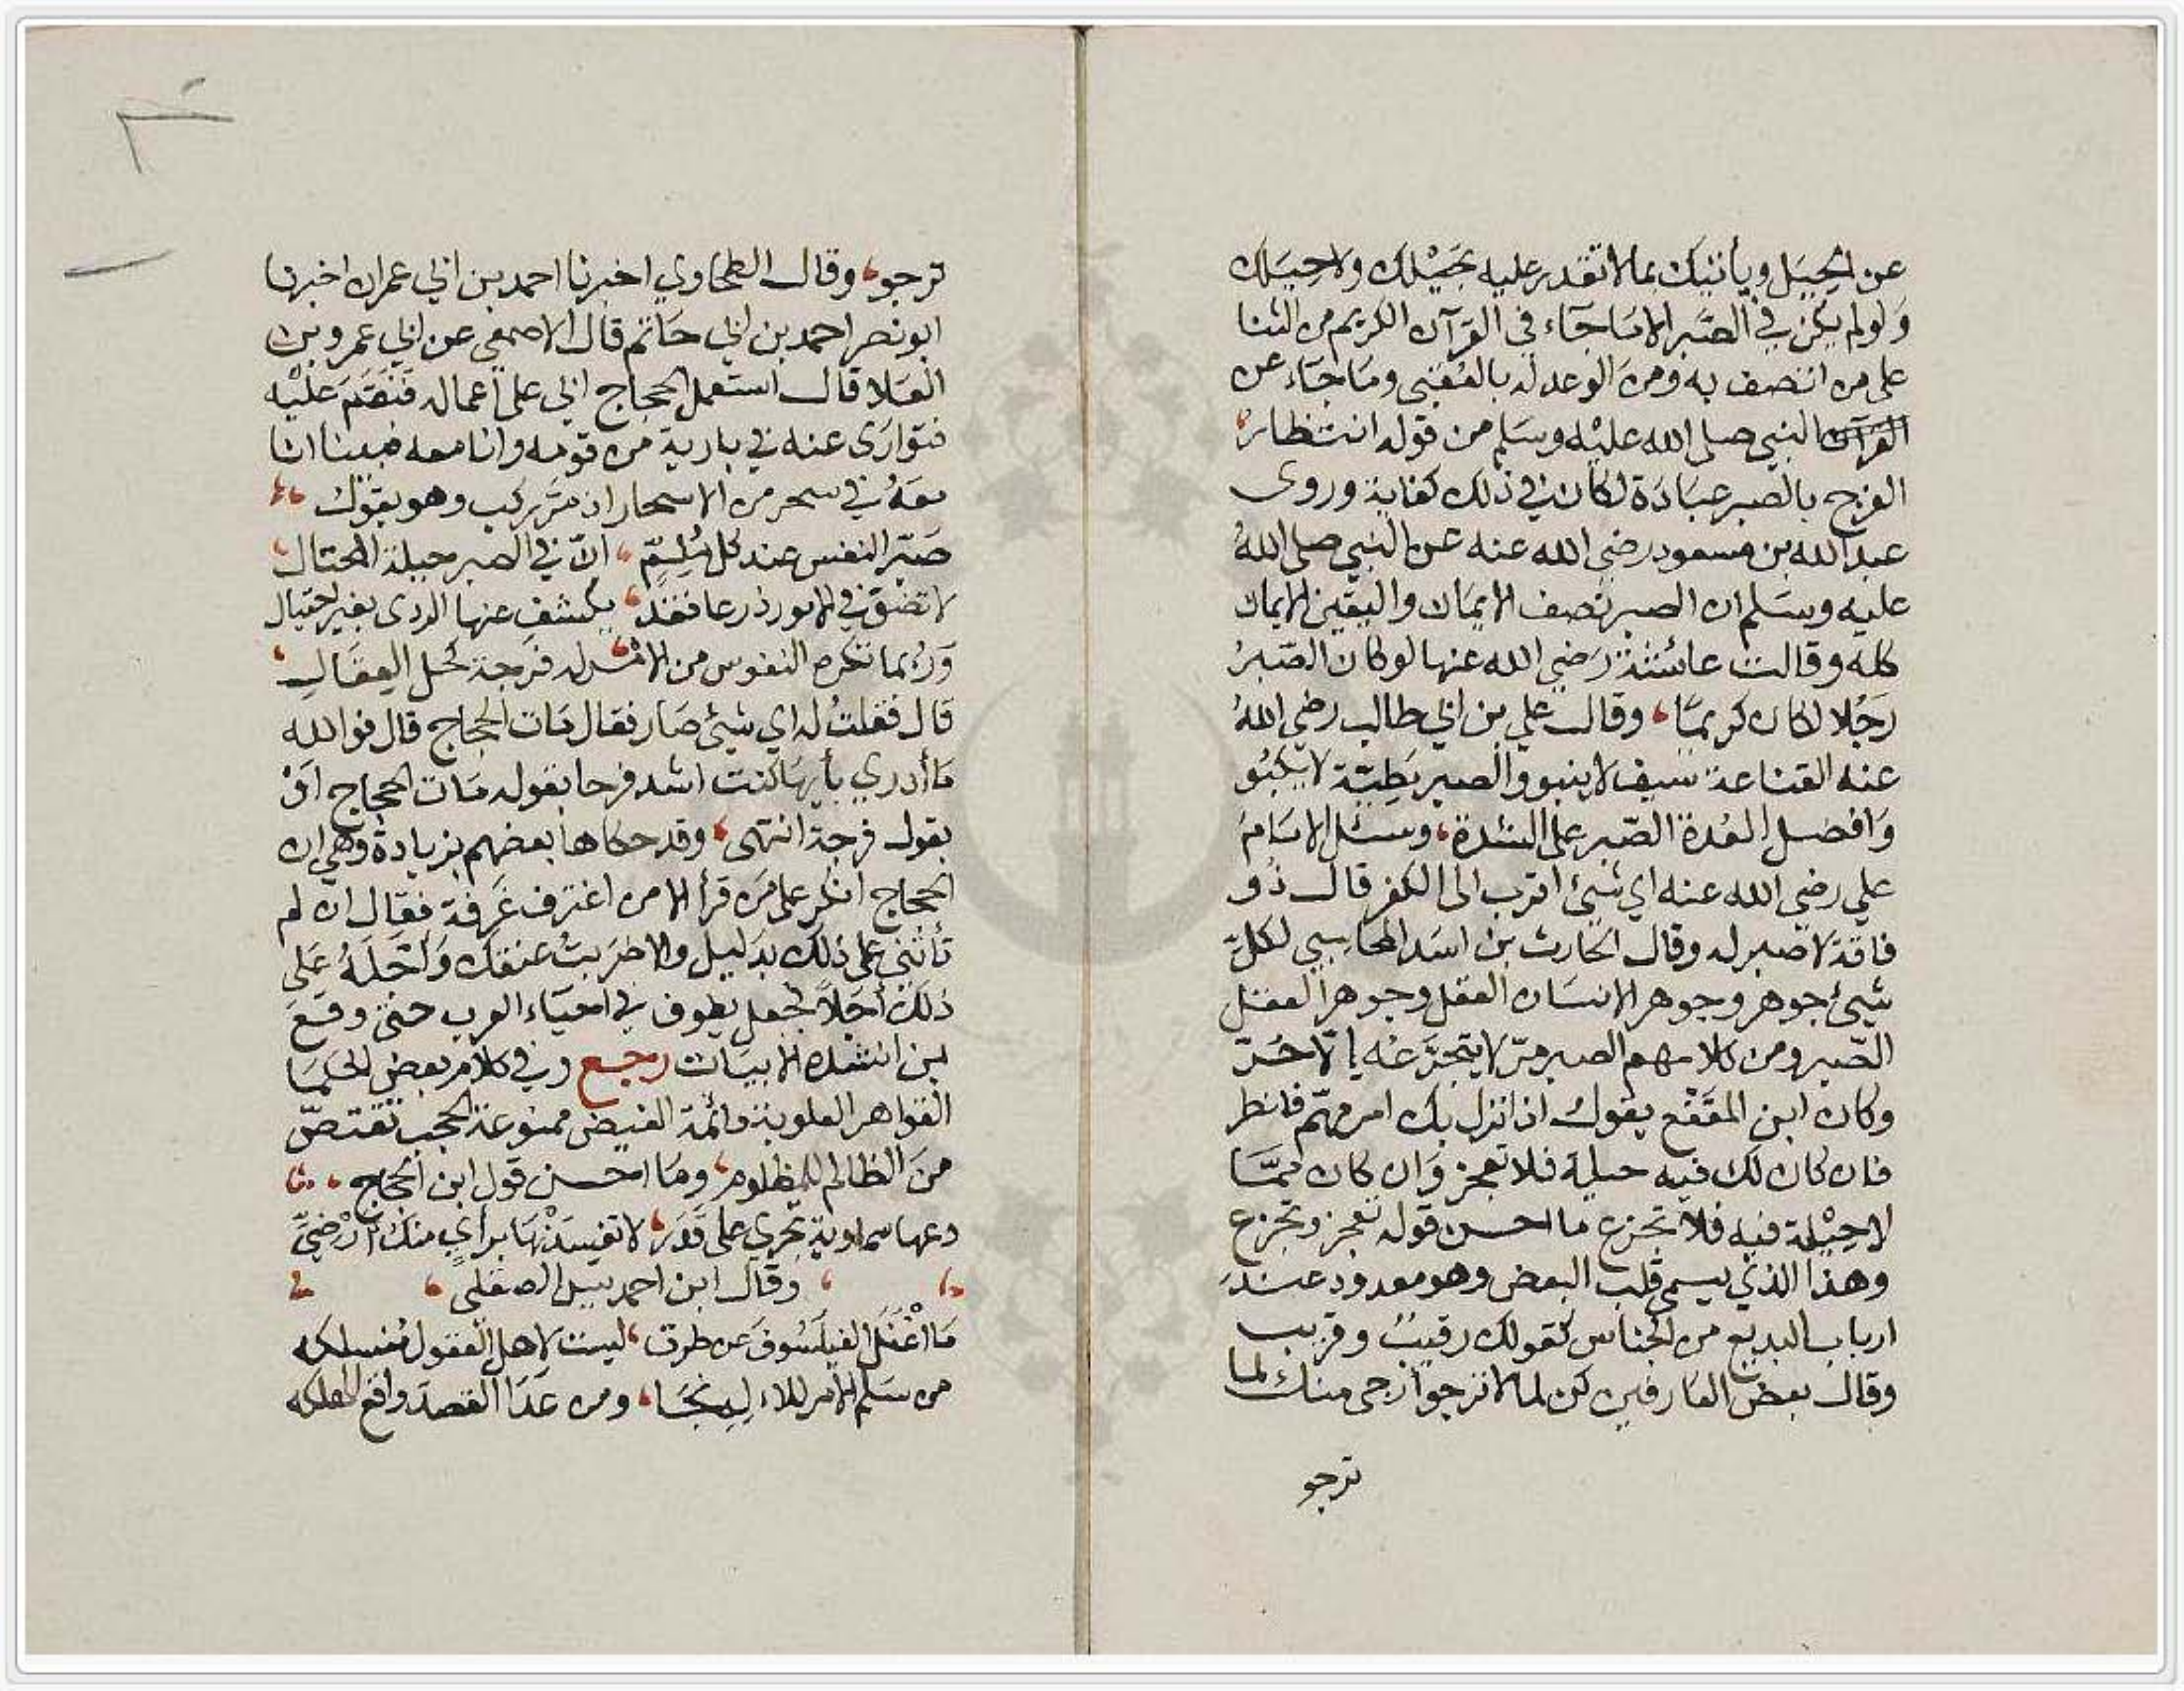 عن الحيل ويأتيك بما لا تقدر عليه بحيلك ولا حيلك
ولو لم يكن في الصبر الا ما جاء في القرآن الكريم من الثنا
على من اتصف به ومن الوعد له بالعقبى وما جاء عن
القرآن النبي صلى الله عليه وسلم من قوله انتظار
الفرج بالصبر عبادة لكان في ذلك كفاية وروى
عبد الله بن مسعود رضي الله عنه عن النبي صلى الله
عليه وسلم ان الصبر نصف الايمان واليقين الايمان
كله وقالت عائشة رضي الله عنها لو كان الصبر
رجلا لكان كريما، وقال علي بن ابي طالب رضي الله
عنه القناعة سيف لا ينبو والصبر مطية لا يكبو
وافضل العدة الصبر على الشدة، وسئل الامام
علي رضي الله عنه اي شيئ اقرب الى الكفر قال ذو
فاقة لا صبر له وقال الحارث بن اسد المحاسبي لكل
شيئ جوهر وجوهر الانسان العقل وجوهر العقل
الصبر ومن كلامهم الصبر مر لا يتجرعه الا حر
وكان ابن المقفع يقول اذا نزل بك امر مهم فانظر
فان كان لك فيه حيلة فلا تعجز وان كان مما
لا حيلة فيه فلا تجزع ما احسن قوله تعجز وتجزع
وهذا الذي يسمى قلب البعض وهو معدود عند
ارباب البديع من الجناس كقولك رقيب وقريب
وقال بعض العارفين كن لما لا ترجو ارجى منك لما
ترجو
ترجو، وقال الطحاوي اخبرنا احمد بن ابي عمران اخبرنا
ابو نصر احمد بن ابي حاتم قال الاصمعي عن ابي عمرو بن
العلا قال استعمل الحجاج ابي على اعماله فنقم عليه
فتوارى عنه في بادية من قومه وانا معه فبينا انا
معه في سحر من الاسحار اذ مر ركب وهو يقول
صبر النفس عند كل ملم، ان في الصبر حيلة المحتال
لا تضق في الامور ذرعا فقد، يكشف عنها الردى بغير احتيال
وربما تكره النفوس من الامر، له فرجة كحل العقال
قال فقلت له اي شيئ صار فقال مات الحجاج قال فوالله
ما أدري بأيهما كنت اشد فرحا بقوله مات الحجاج او
بقول فرجة انتهى، وقد حكاها بعضهم بزيادة وهي ان
الحجاج انكر على من قرأ الا من اغترف غرفة فقال ان لم
تأتني على ذلك بدليل والا ضربت عنقك وأجله على
ذلك أجلا فجعل يطوف في احياء العرب حتى وقع
بمن انشده الابيات رجع وفي كلام بعض الحكما
القواهر العلوية دائمة الفيض ممنوعة الحجب تقتص
من الظالم للمظلوم، وما احسن قول ابن الحجاج
دعها سماوية تجري على قدر، لا تفسدنها براي منك ارضي
وقال ابن احمد الصقلي
ما اغفل الفيلسوف عن طرق، ليست لاهل العقول منسلكه
من سلم الامر للاله نجا، ومن عدا القصد واقع الهلكه